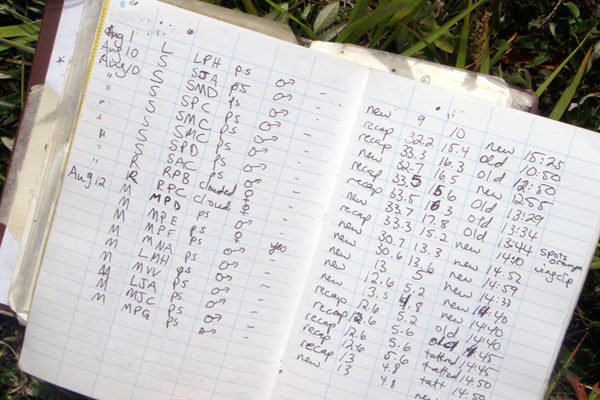 Aug 1 L LPH ps ♂ -
Aug 10 S SJA ps ♂ -
Aug 10 S SMD ps ♂ -
" S SPC ps ♂ -
" S SMC ps ♂ -
" S SMC ps ♂ -
" S SPD ps ♂ -
" R SAC ps ♂ -
" R RPB clouded ♀ -
Aug 12 M RPC cloud ♀ yes
M MPD ps ♂ -
M MPE ps ♂ -
M MPF ps ♂ -
M MNA ps ♂ -
M LMH ps ♂ -
M MVV ps ♂ -
M LJA ps ♂ -
M MJC ps ♂ -
MPG ps ♂ -
new 9 10 new 15:25
recap 32.2 15.4 old 10:50
new 33.3 16.3 old 12:50
recap 32.7 16.5 new 12:55
recap 33.5 16 old 13:29
new 33.5 16.3 old 13:34
recap 33.7 17.8 old 13:44 spots orange
new 33.3 15.2 new 14:10 wingclip
new 30.7 13.3 new 14:52
new 30.6 13.6 new 14:59
new 13 5 new 14:33
recap 12.6 5.2 new 14:40
recap 13.5 4.8 14:40
recap 12.6 5.2 old 14:40
recap 12.6 5.6 old 14:45
recap 12.6 5.6 tattered 14:45
recap 13 5.6 tatted 14:50
new 13 4.8 tatt 14:50
4.8 new